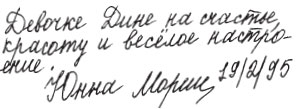 Девочке Дине на счастье,
красоту и весёлое настро-
ение.
Юнна Мориц 19/2/95